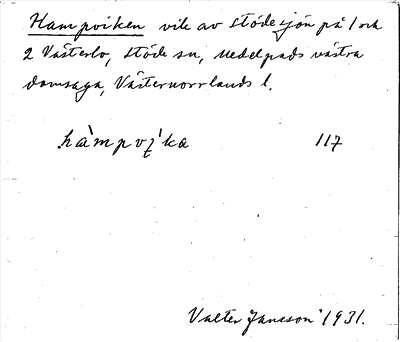 Hampviken vik av Stödesjön på 1 och
2 Västerlo, Stöde sn, Medelpads västra
domsaga, Västernorrlands l.
hàmpvi̯'ka 117
Valter Jansson 1931.